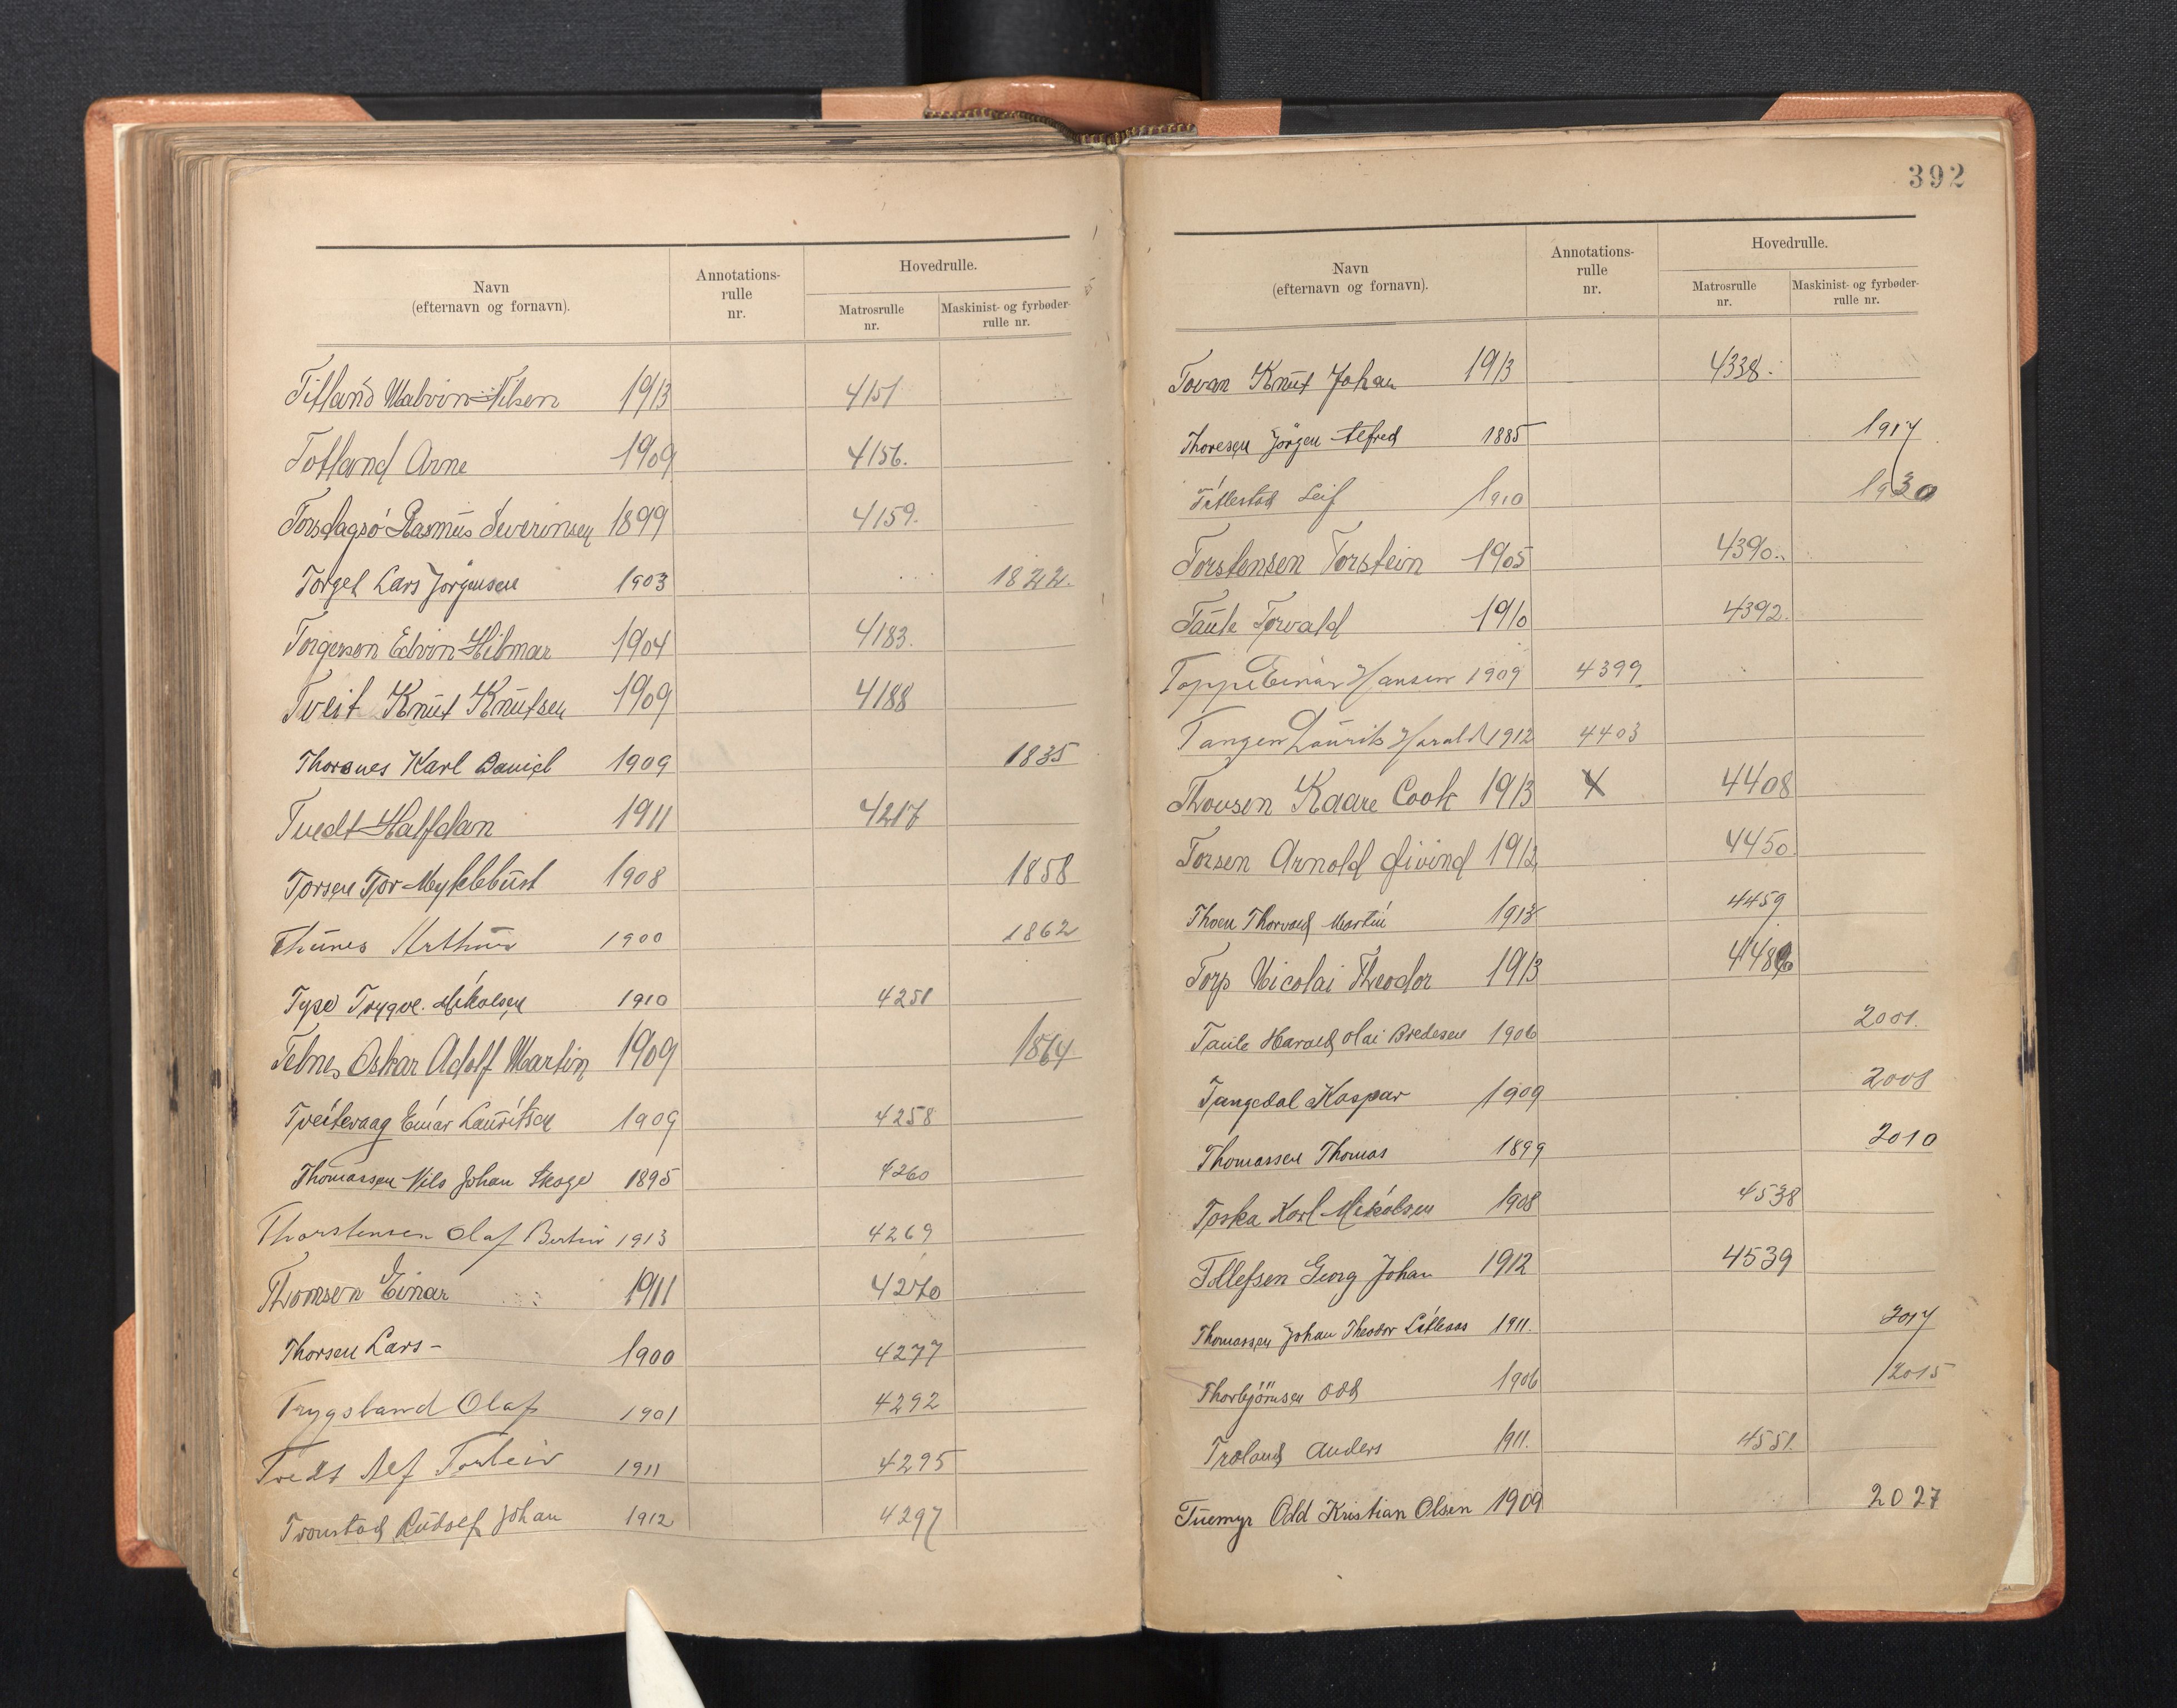 Navn
(efternavn og fornavn).
Annotations-
rulle
nr.
Hovedrulle.
Matrosrulle
nr.
Maskinist- og fyrbøder-
rulle nr.
Titland Malvin Nilsen 1913 4151
Totland Arne 1909 4156.
Torsdagsø Rasmus Severinsen 1899 4159.
Torget Lars Jørgensen 1903 1822.
Torgersen Edvin Hilmar 1904 4183.
Tveit Knut Knutsen 1909 4188
Thorsnes Karl Daniel 1909 1835
Tvedt Halfdan 1911 4217
Torsen Tor Myklebust 1908 1858
Thunes Arthur 1900 1862
Tysø Trygve Mikalsen 1910 4251
Telnes Oskar Adolf Martin 1909 1864
Tveitevaag Einar Lauritsen 1909 4258
Thomassen Nils Johan Skoge 1895 4260
Thorstensen Olaf Bertin 1913 4269
Thomsen Einar 1911 4270
Thorsen Lars - 1900 4277
Trygsland Olaf 1901 4292
Tvedt Alf Torleiv 1911 4295
Tronstad Rudolf Johan 1912 4297
392
Navn
(efternavn og fornavn).
Annotations-
rulle
nr.
Hovedrulle.
Matrosrulle
nr.
Maskinist- og fyrbøder-
rulle nr.
Tovan Knut Johan 1913 4338.
Thoresen Jörgen Alfred 1885 1917
Titlestad Leif 1910 1930
Torstensen Torstein 1905 4390.
Taule Torvald 1910 4392.
Toppe Einar Hansen 1909 4399
Tangen Laurits Harald 1912 4403
Thowsen Kaare Cook 1913 4408
Torsen Arnold Øivind 1912 4450
Thoen Thorvald Martin 4459
Torp Nicolai Theodor 1913
Taule Harald Olai Bredesen 1906 2001.
Tangedal Kaspar 1909 2008
Thomassen Thomas 1899 2010
Toska Karl Mikalsen 1908 4538
Tollefsen Georg Johan 1912 4539
Thomassen Johan Theodor Litlesås 1911. 2017
Thorbjörnsen Odd 1906 2015
Træland Anders 1911. 4551.
Tuemyr Odd Kristian Olsen 1909 2027